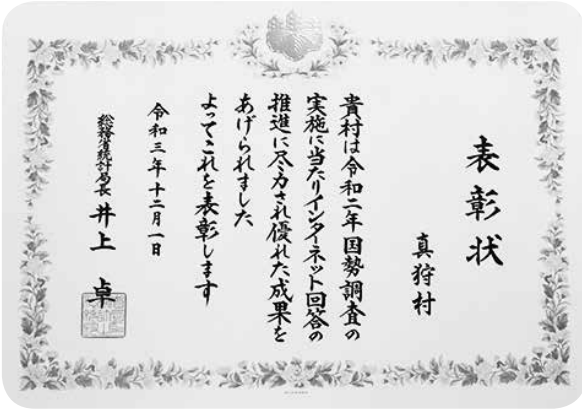 表彰状
真狩村
貴村は令和二年国勢調査の
実施に当たりインターネット回答の
推進に尽力され優れた成果を
あげられました
よってこれを表彰します
令和三年十二月一日
総務省統計局長 井上 卓